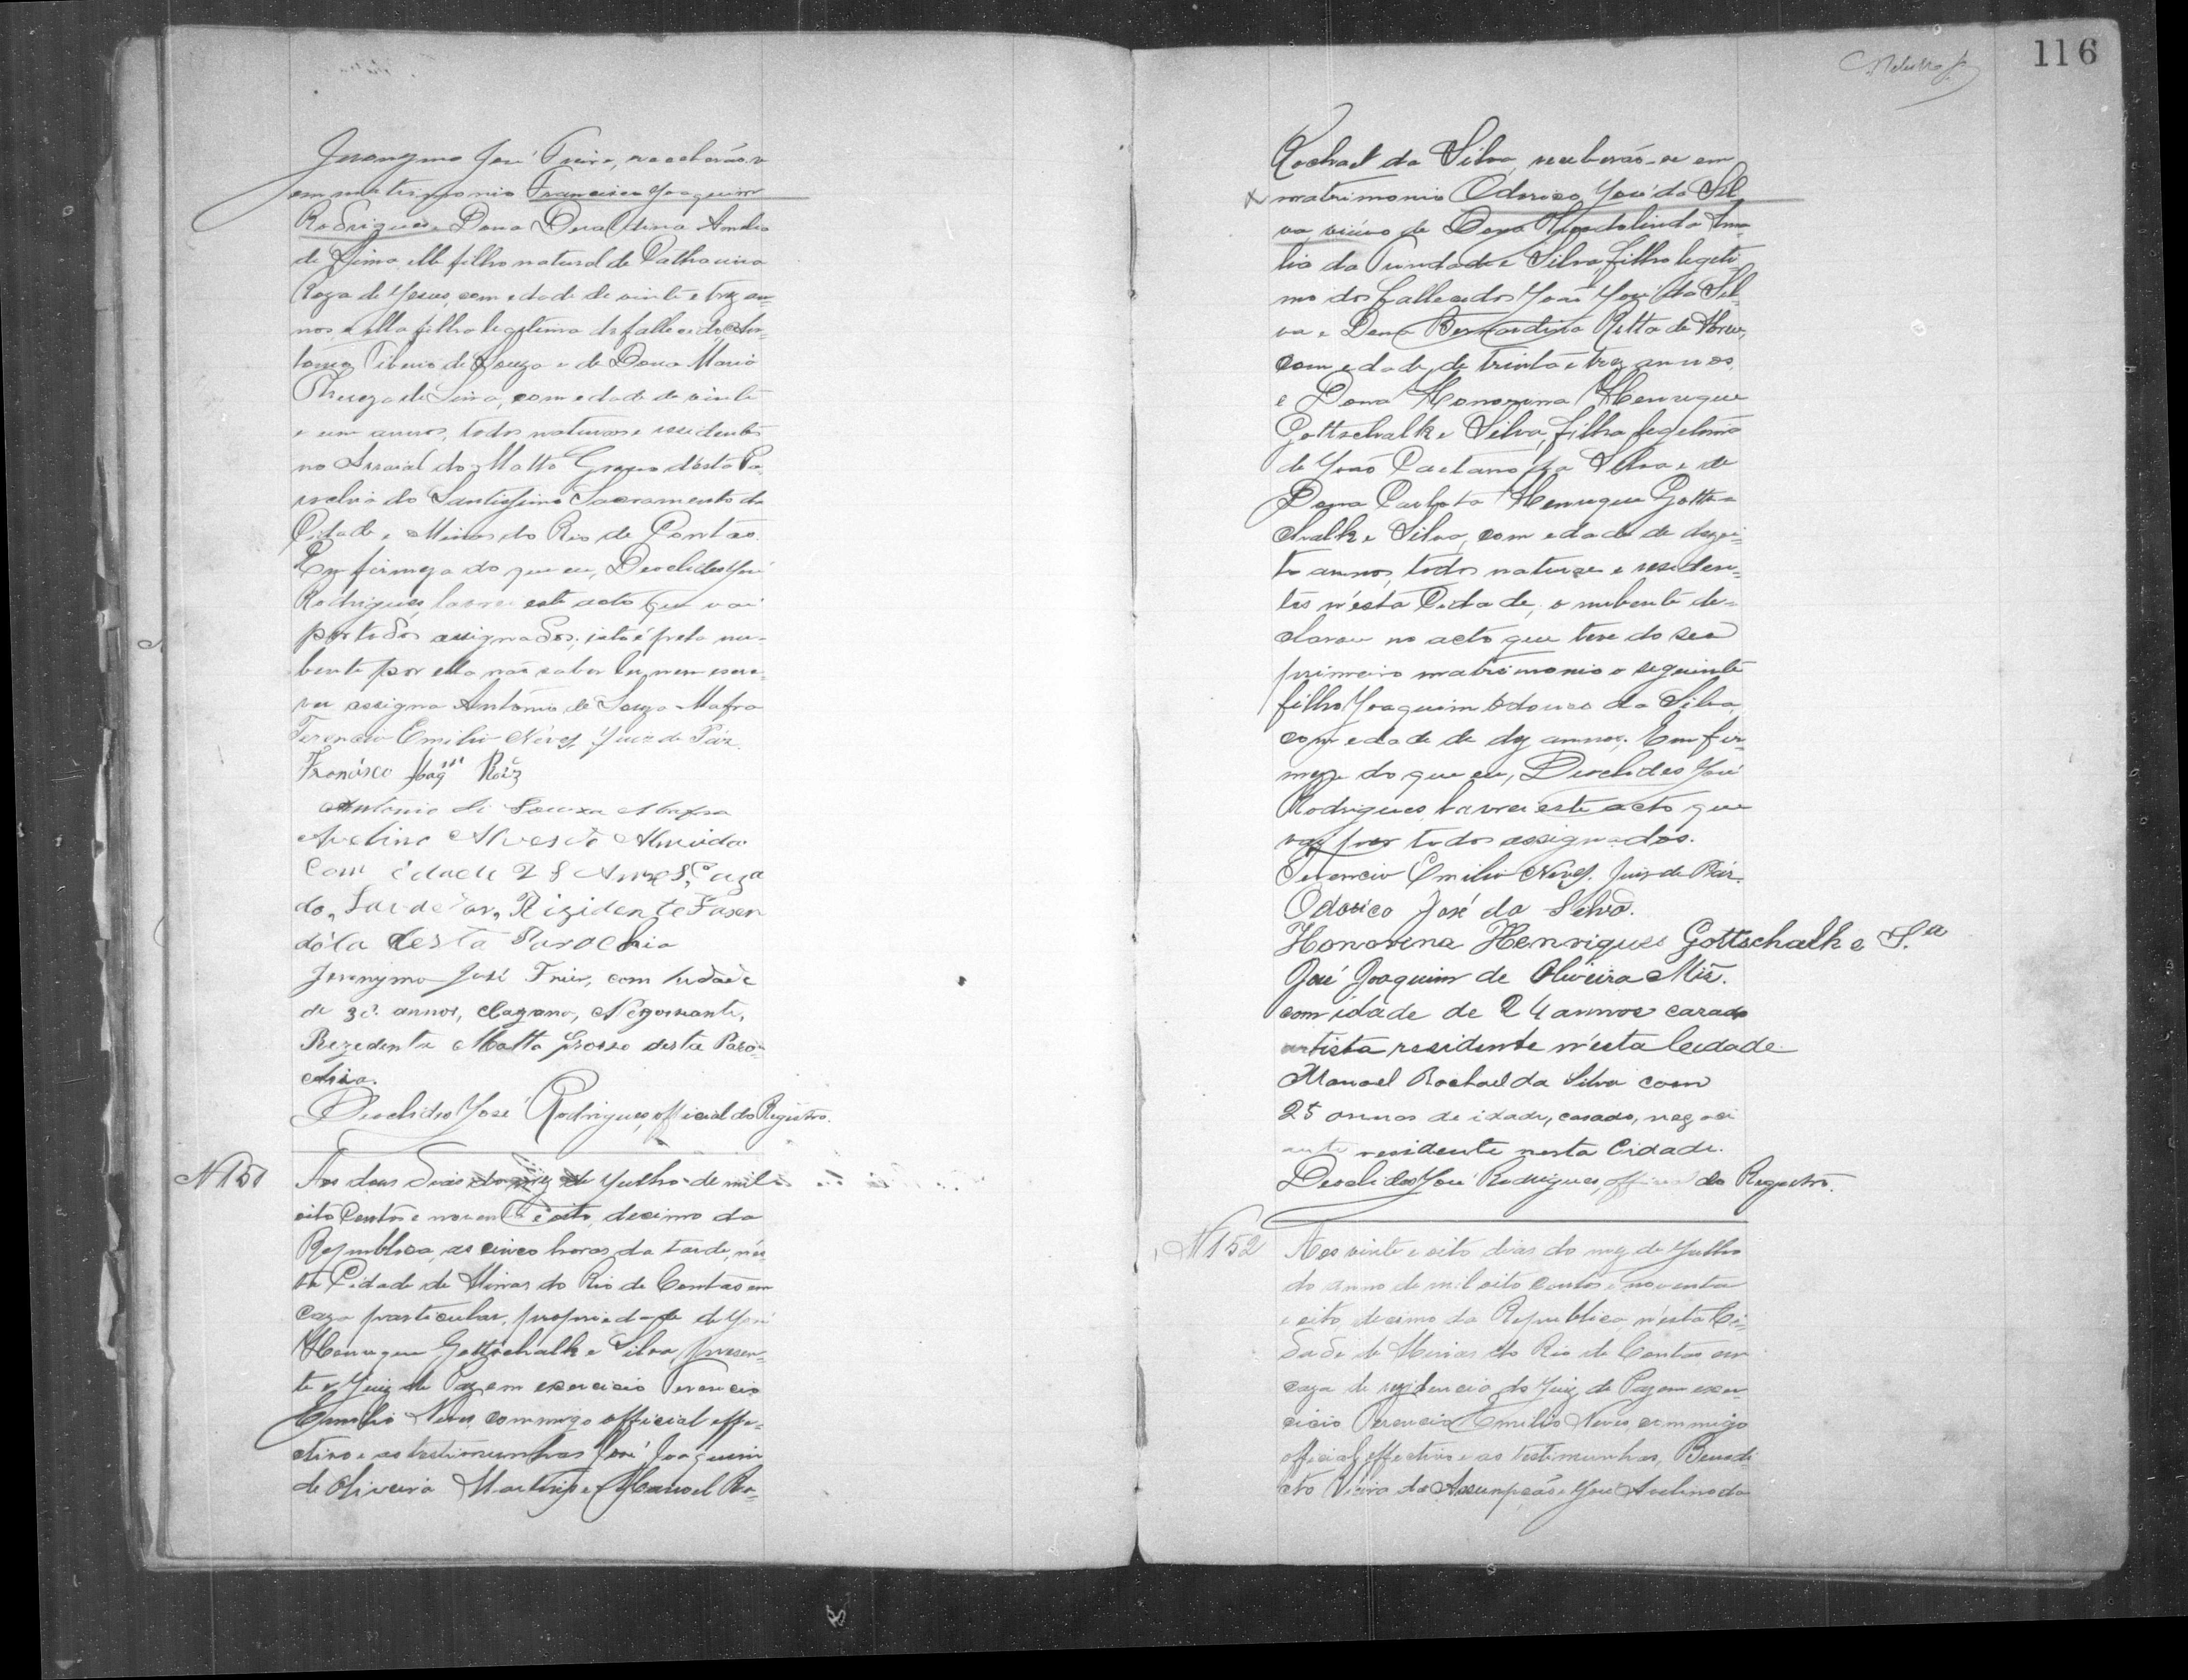 Jeronymo José Freire, receberão-se
em matrimonio Francisco Joaquim
Rodrigues e Dona Deraldina Amelia
de Lima, elle filho natural de Catharina
Roza de Jesus, com edade de vinte e trez an-
nos, e ella filha legitima do fallecido An-
tonio Tiberio de Souza e de Dona Maria
Thereza de Lima, com edade de vinte
e um annos, todos naturaes e residentes
no Arraial do Matto Grosso d'esta Pa-
rochia do Santissimo Sacramento da
Cidade de Minas do Rio de Contas.
Em firmeza do que eu, Deoclides José
Rodrigues, lavrei este acto que vai
por todos assignados; isto é pela nu-
bente por ella não saber ler, nem escre-
ver assigna Antonio de Souza Mafra
Terencio Emilio Neves, Juiz de Paz.
Francisco Joaqm Roiz
Antonio de Souza Mafra
Avelino Alves de Almeida
Com édade 28 Annos, Caza
do, Lavrador, Rizidente Fazen
dóla desta Parochia
Jeronymo José Freire, com hedade
de annos, Cazano, Negossiante,
Rezedente Matto Grosso desta Paro-
chia.
Deoclides José Rodrigues, official do Registro.
N 151
Aos dous dias do mez de Julho de mil
oito Centos e noventa e oito, decimo da
Republica, as cinco horas da tarde, nes-
ta Cidade de Minas do Rio de Contas em
caza particular, propriedade de José
Henrique Gottschalk e Silva, presen-
te o Juiz de Paz em exercicio Terencio
Emilio Neves, commigo official effe-
ctivo e as testimunhas José Joaquim
de Oliveira Martins e Manoel Ro-
116
Rochael da Silva, receberão-se em
matrimonio Odorico José da Sil
va, viúvo de Dona Ama-
lia da Trindade e Silva, filho legiti-
mo dos fallecidos João José da Sil-
va e Dona Bernardina Ritta de Abreu,
com edade de trinta e trez annos,
e Dona Honorina Henrique
Gottschalk e Silva, filha legitima
de João Caetano da Silva e de
Dona Carlota Henrique Gotts-
chalk e Silva, com edade de dezoi-
to annos, todos naturaes e residen-
tes n'esta Cidade, o nubente de-
clarou no acto que teve do seu
primeiro matrimonio o seguinte
filho Joaquim Odorico da Silva,
com edade de dez annos. Em fir-
meza do que eu, Deoclides José
Rodrigues lavrei este acto que
vai por todos assignados.
Terencio Emilio Neves. Juiz de Paz.
Odorico José da Silva.
Honorina Henriques Gottschalk e S.a
José Joaquim de Oliveira Miz.
com idade de 24 annos cazado
artista residente n'esta Cidade
Manoel Rochael da Silva com
25 annos de idade, casado, negoci
ante residente nesta Cidade.
Deoclides José Rodrigues, official do Registro.
N 152
Aos vinte e oito dias do mez de Julho
do anno de mil oito centos e noventa
e oito, decimo da Republica n'esta Ci-
dade de Minas do Rio de Contas em
caza de rezidencia do Juiz de Paz em exer-
cicio Terencio Emilio Neves, commigo
official effectivo e as testimunhas, Benedi
cto Vieira da Assumpção e José Avelino da